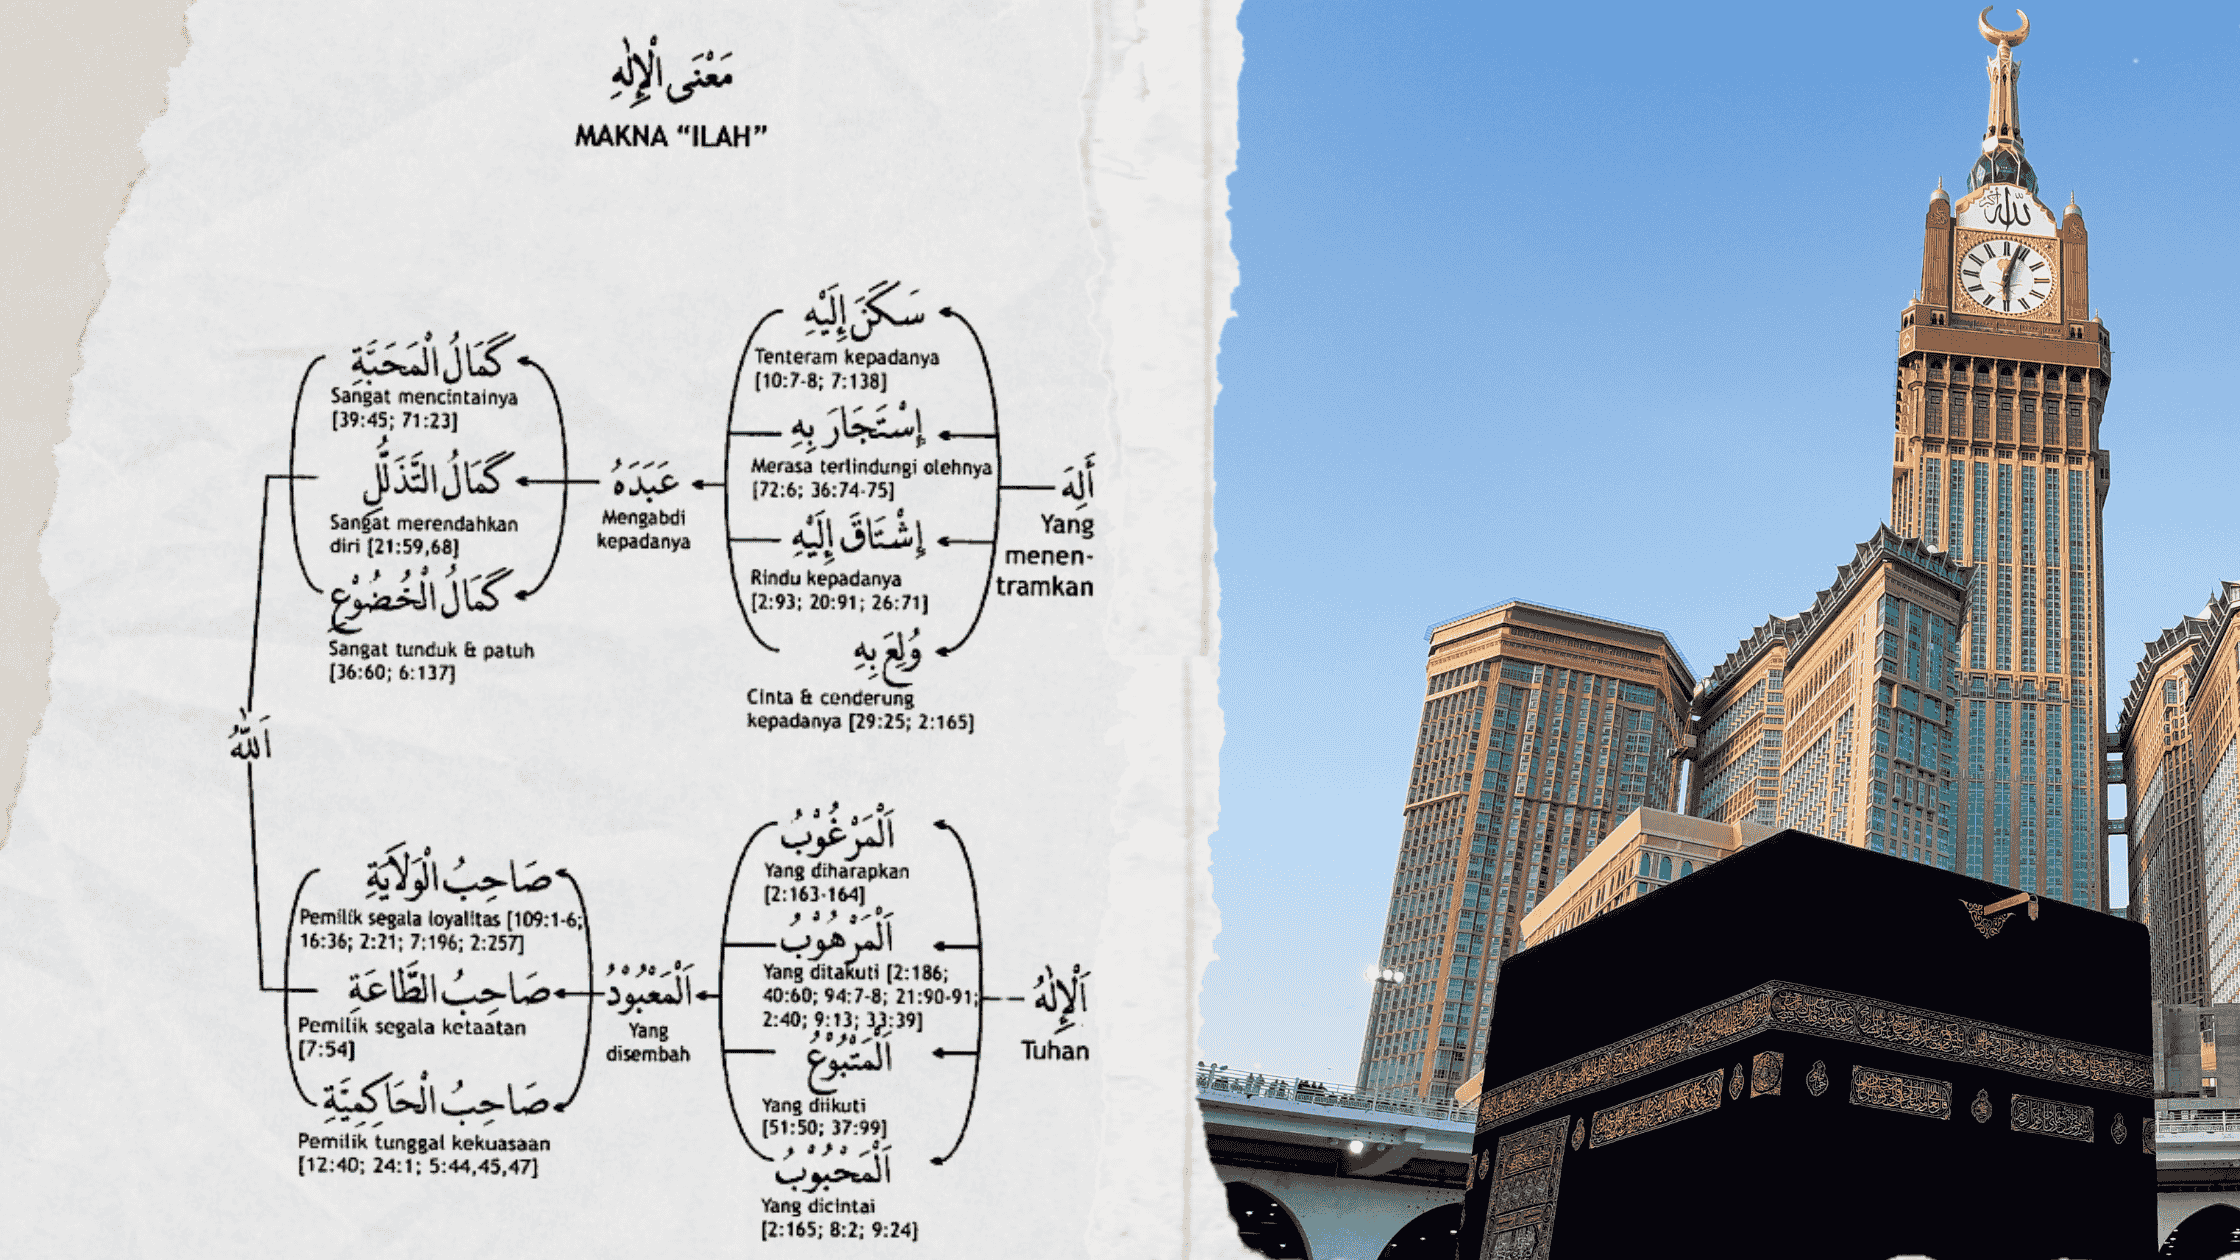 مَعْنَى الْإِلٰهِ
MAKNA “ILAH”
أَلِهَ
Yang
menen-
tramkan
سَكَنَ إِلَيْهِ
Tenteram kepadanya
[10:7-8; 7:138]
إِسْتَجَارَ بِهِ
Merasa terlindungi olehnya
[72:6; 36:74-75]
إِشْتَاقَ إِلَيْهِ
Rindu kepadanya
[2:93; 20:91; 26:71]
وُلِعَ بِهِ
Cinta & cenderung
kepadanya [29:25; 2:165]
عَبَدَهُ
Mengabdi
kepadanya
كَمَالُ الْمَحَبَّةِ
Sangat mencintainya
[39:45; 71:23]
كَمَالُ التَّذَلُّلِ
Sangat merendahkan
diri [21:59,68]
كَمَالُ الْخُضُوْعِ
Sangat tunduk & patuh
[36:60; 6:137]
اَللّٰهُ
اَلْإِلٰهُ
Tuhan
اَلْمَرْغُوْبُ
Yang diharapkan
[2:163-164]
اَلْمَرْهُوْبُ
Yang ditakuti [2:186;
40:60; 94:7-8; 21:90-91;
2:40; 9:13; 33:39]
اَلْمَتْبُوْعُ
Yang diikuti
[51:50; 37:99]
اَلْمَحْبُوْبُ
Yang dicintai
[2:165; 8:2; 9:24]
اَلْمَعْبُوْدُ
Yang
disembah
صَاحِبُ الْوَلَايَةِ
Pemilik segala loyalitas [109:1-6;
16:36; 2:21; 7:196; 2:257]
صَاحِبُ الطَّاعَةِ
Pemilik segala ketaatan
[7:54]
صَاحِبُ الْحَاكِمِيَّةِ
Pemilik tunggal kekuasaan
[12:40; 24:1; 5:44,45,47]
الله أكبر